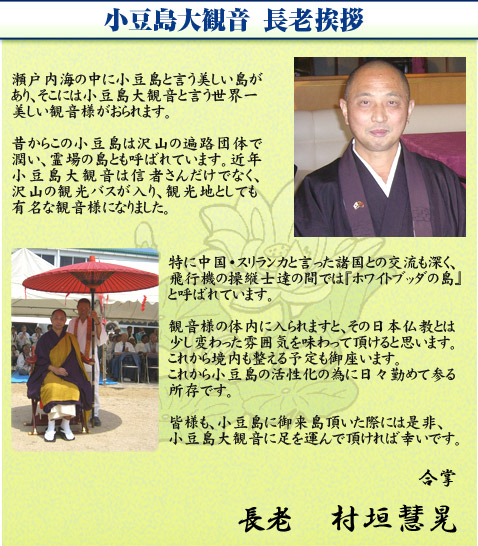 小豆島大観音 長老挨拶
瀬戸内海の中に小豆島と言う美しい島が
あり、そこには小豆島大観音と言う世界一
美しい観音様がおられます。
昔からこの小豆島は沢山の遍路団体で
潤い、霊場の島とも呼ばれています。近年
小豆島大観音は信者さんだけでなく、
沢山の観光バスが入り、観光地としても
有名な観音様になりました。
特に中国・スリランカと言った諸国との交流も深く、
飛行機の操縦士達の間では『ホワイトブッダの島』
と呼ばれています。
観音様の体内に入られますと、その日本仏教とは
少し変わった雰囲気を味わって頂けると思います。
これから境内も整える予定も御座います。
これから小豆島の活性化の為に日々勤めて参る
所存です。
皆様も、小豆島に御来島頂いた際には是非、
小豆島大観音に足を運んで頂ければ幸いです。
合掌
長老 村垣慧晃